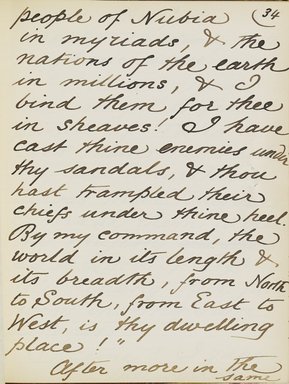 people of Nubia (34
in myriads, & the
nations of the earth
in millions, & I
bind them for thee
in sheaves! I have
cast thine enemies under
thy sandals, & thou
hast trampled their
chiefs under thine heel.
By my command, the
world in its length &
its breadth, from North
to South, from East to
West, is thy dwelling
place!"
After more in the
same